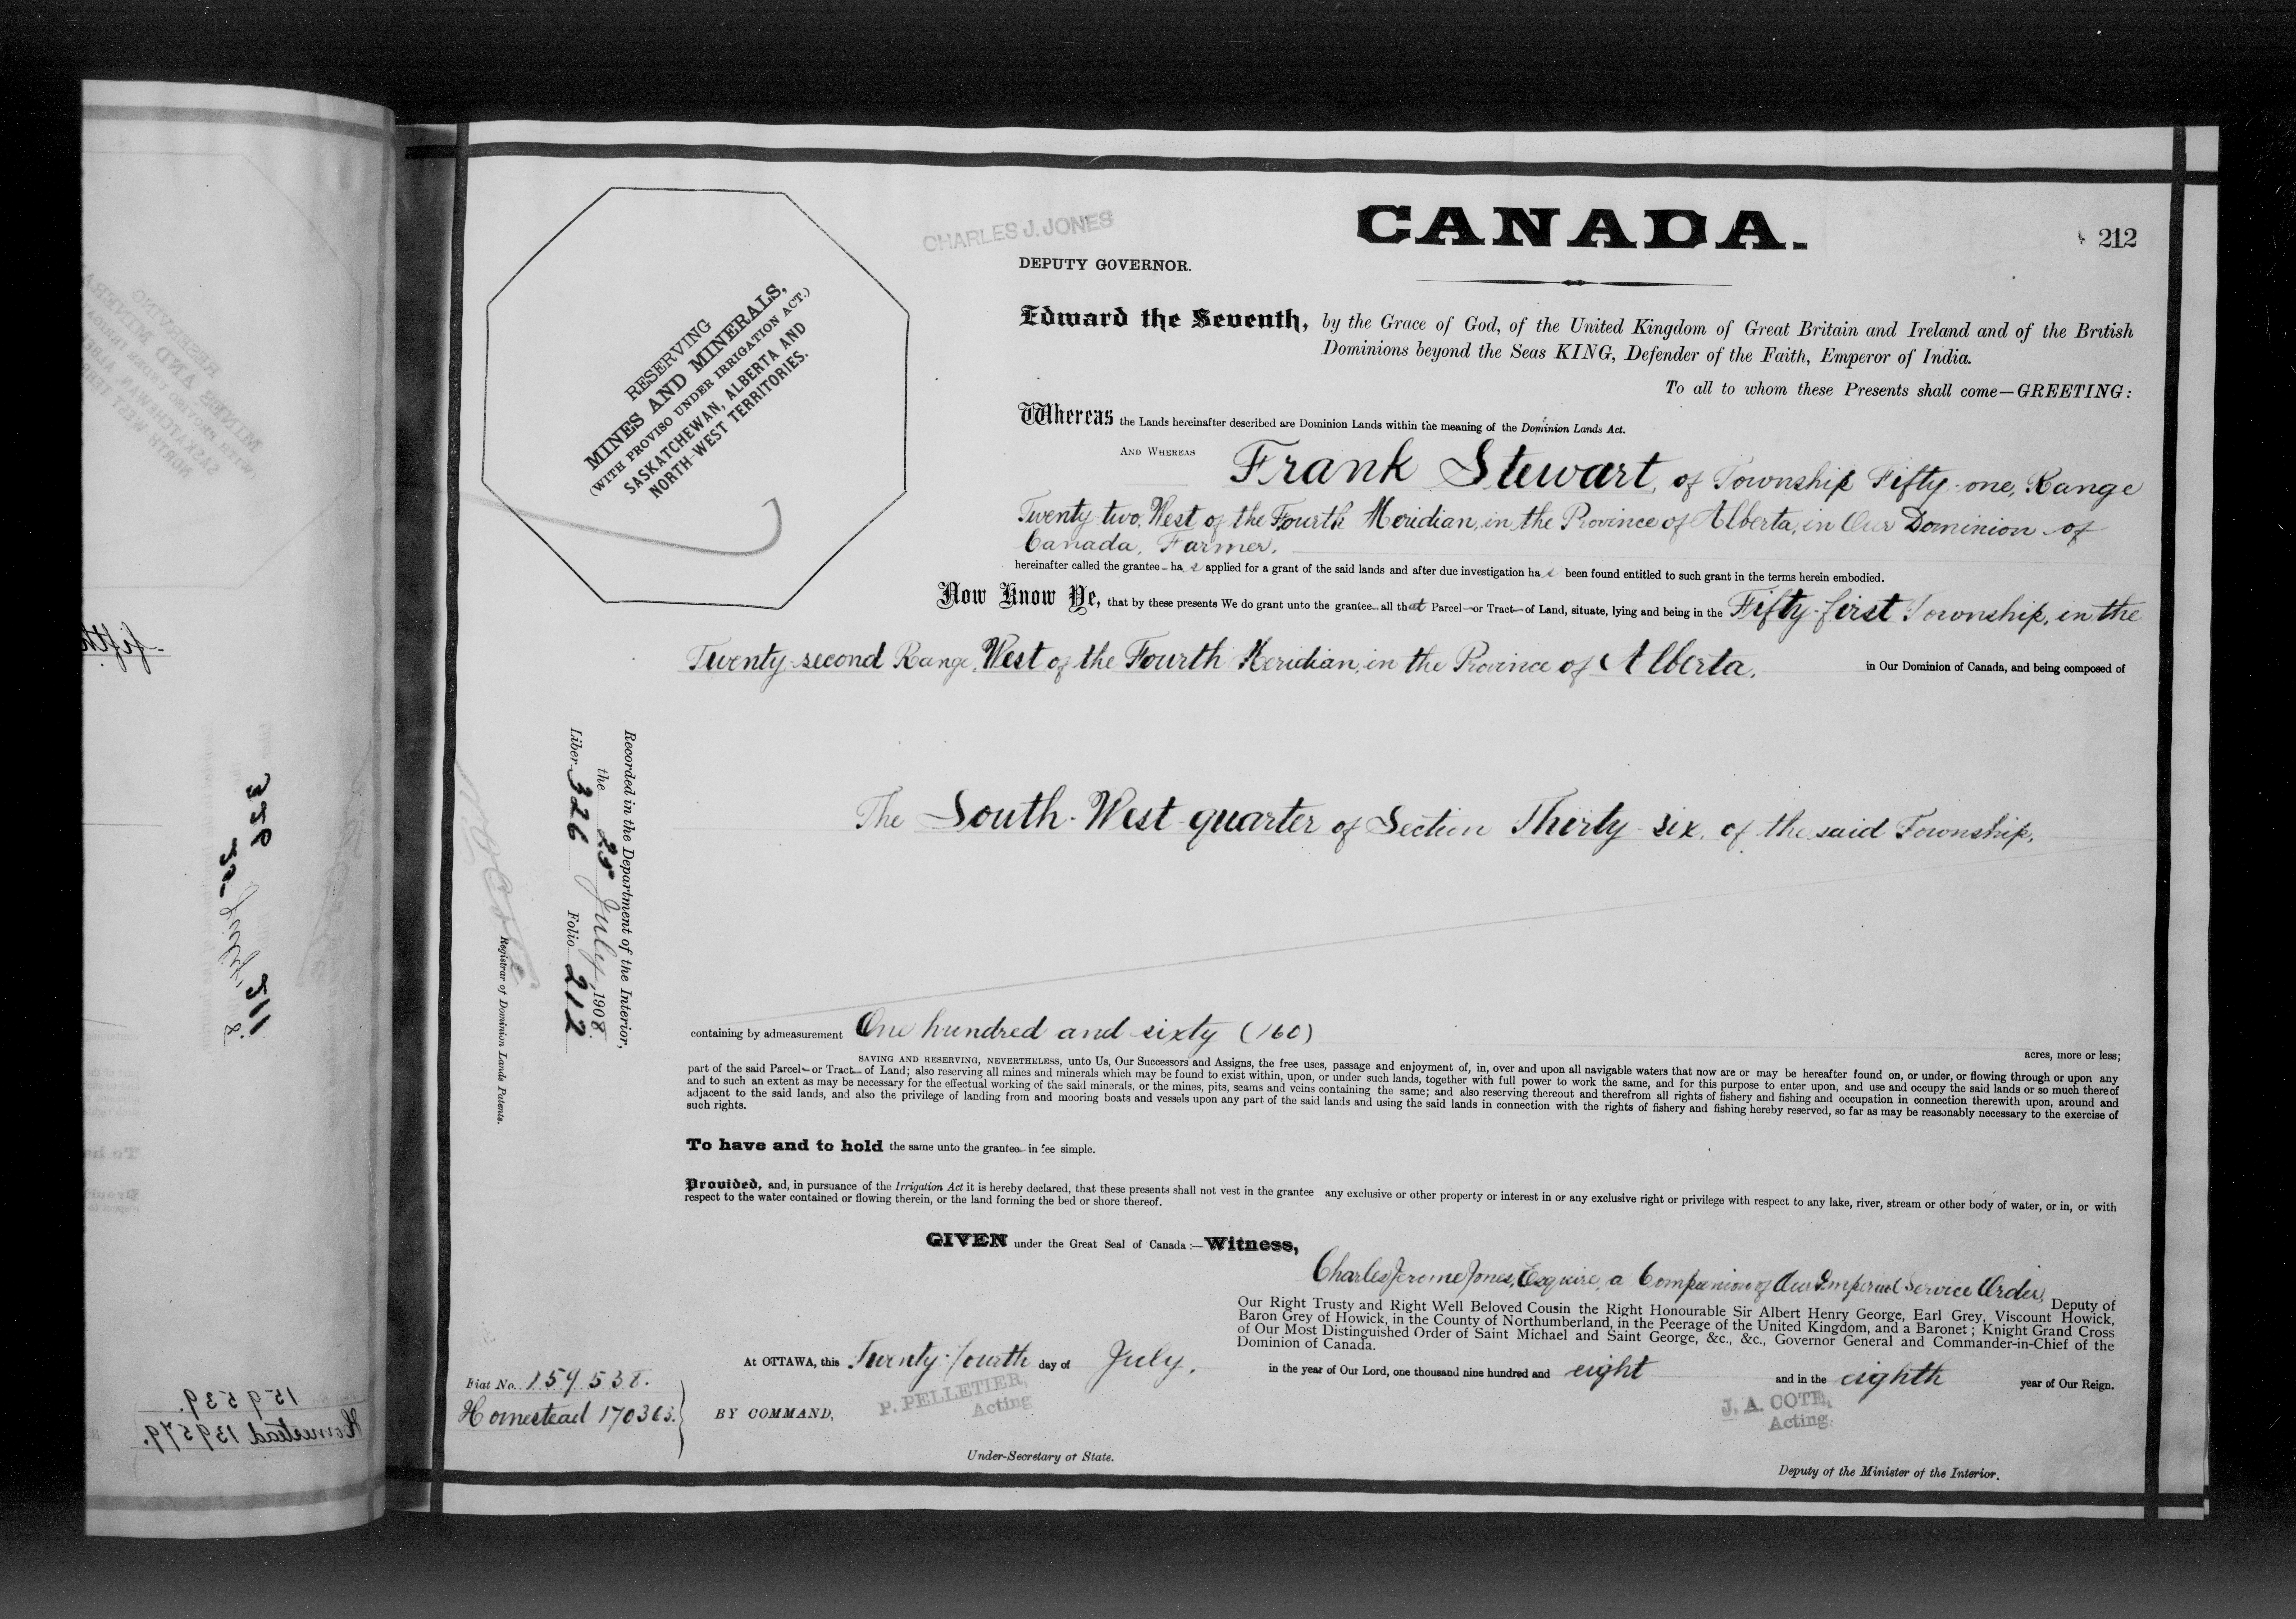 CANADA.
212
CHARLES J. JONES
DEPUTY GOVERNOR.
RESERVING
MINES AND MINERALS,
(WITH PROVISO UNDER IRRIGATION ACT.)
SASKATCHEWAN, ALBERTA AND
NORTH-WEST TERRITORIES.
Edward the Seventh, by the Grace of God, of the United Kingdom of Great Britain and Ireland and of the British
Dominions beyond the Seas KING, Defender of the Faith, Emperor of India.
To all to whom these Presents shall come—GREETING:
Whereas the Lands hereinafter described are Dominion Lands within the meaning of the Dominion Lands Act.
AND WHEREAS Frank Stewart, of Township Fifty-one, Range
Twenty-two, West of the Fourth Meridian, in the Province of Alberta, in Our Dominion of
Canada, Farmer,
hereinafter called the grantee has applied for a grant of the said lands and after due investigation has been found entitled to such grant in the terms herein embodied.
Now Know Ye, that by these presents We do grant unto the grantee all that Parcel or Tract of Land, situate, lying and being in the Fifty-first Township, in the
Twenty-second Range, West of the Fourth Meridian, in the Province of Alberta, in Our Dominion of Canada, and being composed of
The South-West quarter of Section Thirty-six, of the said Township,
containing by admeasurement One hundred and sixty (160) acres, more or less;
SAVING AND RESERVING, NEVERTHELESS, unto Us, Our Successors and Assigns, the free uses, passage and enjoyment of, in, over and upon all navigable waters that now are or may be hereafter found on, or under, or flowing through or upon any
part of the said Parcel or Tract of Land; also reserving all mines and minerals which may be found to exist within, upon, or under such lands, together with full power to work the same, and for this purpose to enter upon, and use and occupy the said lands or so much thereof
and to such an extent as may be necessary for the effectual working of the said minerals, or the mines, pits, seams and veins containing the same; and also reserving thereout and therefrom all rights of fishery and fishing and occupation in connection therewith upon, around and
adjacent to the said lands, and also the privilege of landing from and mooring boats and vessels upon any part of the said lands and using the said lands in connection with the rights of fishery and fishing hereby reserved, so far as may be reasonably necessary to the exercise of
such rights.
To have and to hold the same unto the grantee in fee simple.
Provided, and, in pursuance of the Irrigation Act it is hereby declared, that these presents shall not vest in the grantee any exclusive or other property or interest in or any exclusive right or privilege with respect to any lake, river, stream or other body of water, or in, or with
respect to the water contained or flowing therein, or the land forming the bed or shore thereof.
GIVEN under the Great Seal of Canada:—Witness,
Charles Jerome Jones, Esquire, a Companion of Our Imperial Service Order, Deputy of
Our Right Trusty and Right Well Beloved Cousin the Right Honourable Sir Albert Henry George, Earl Grey, Viscount Howick,
Baron Grey of Howick, in the County of Northumberland, in the Peerage of the United Kingdom, and a Baronet; Knight Grand Cross
of Our Most Distinguished Order of Saint Michael and Saint George, &c., &c., Governor General and Commander-in-Chief of the
Dominion of Canada.
At OTTAWA, this Twenty-fourth day of July, in the year of Our Lord, one thousand nine hundred and eight and in the eighth year of Our Reign.
Fiat No. 159538.
Homestead 170363.
BY COMMAND,
P. PELLETIER,
Acting
Under-Secretary of State.
J. A. COTE,
Acting.
Deputy of the Minister of the Interior.
Recorded in the Department of the Interior,
the 25 July, 1908.
Liber 326 Folio 212
Registrar of Dominion Lands Patents.
159539.
Homestead 139579.